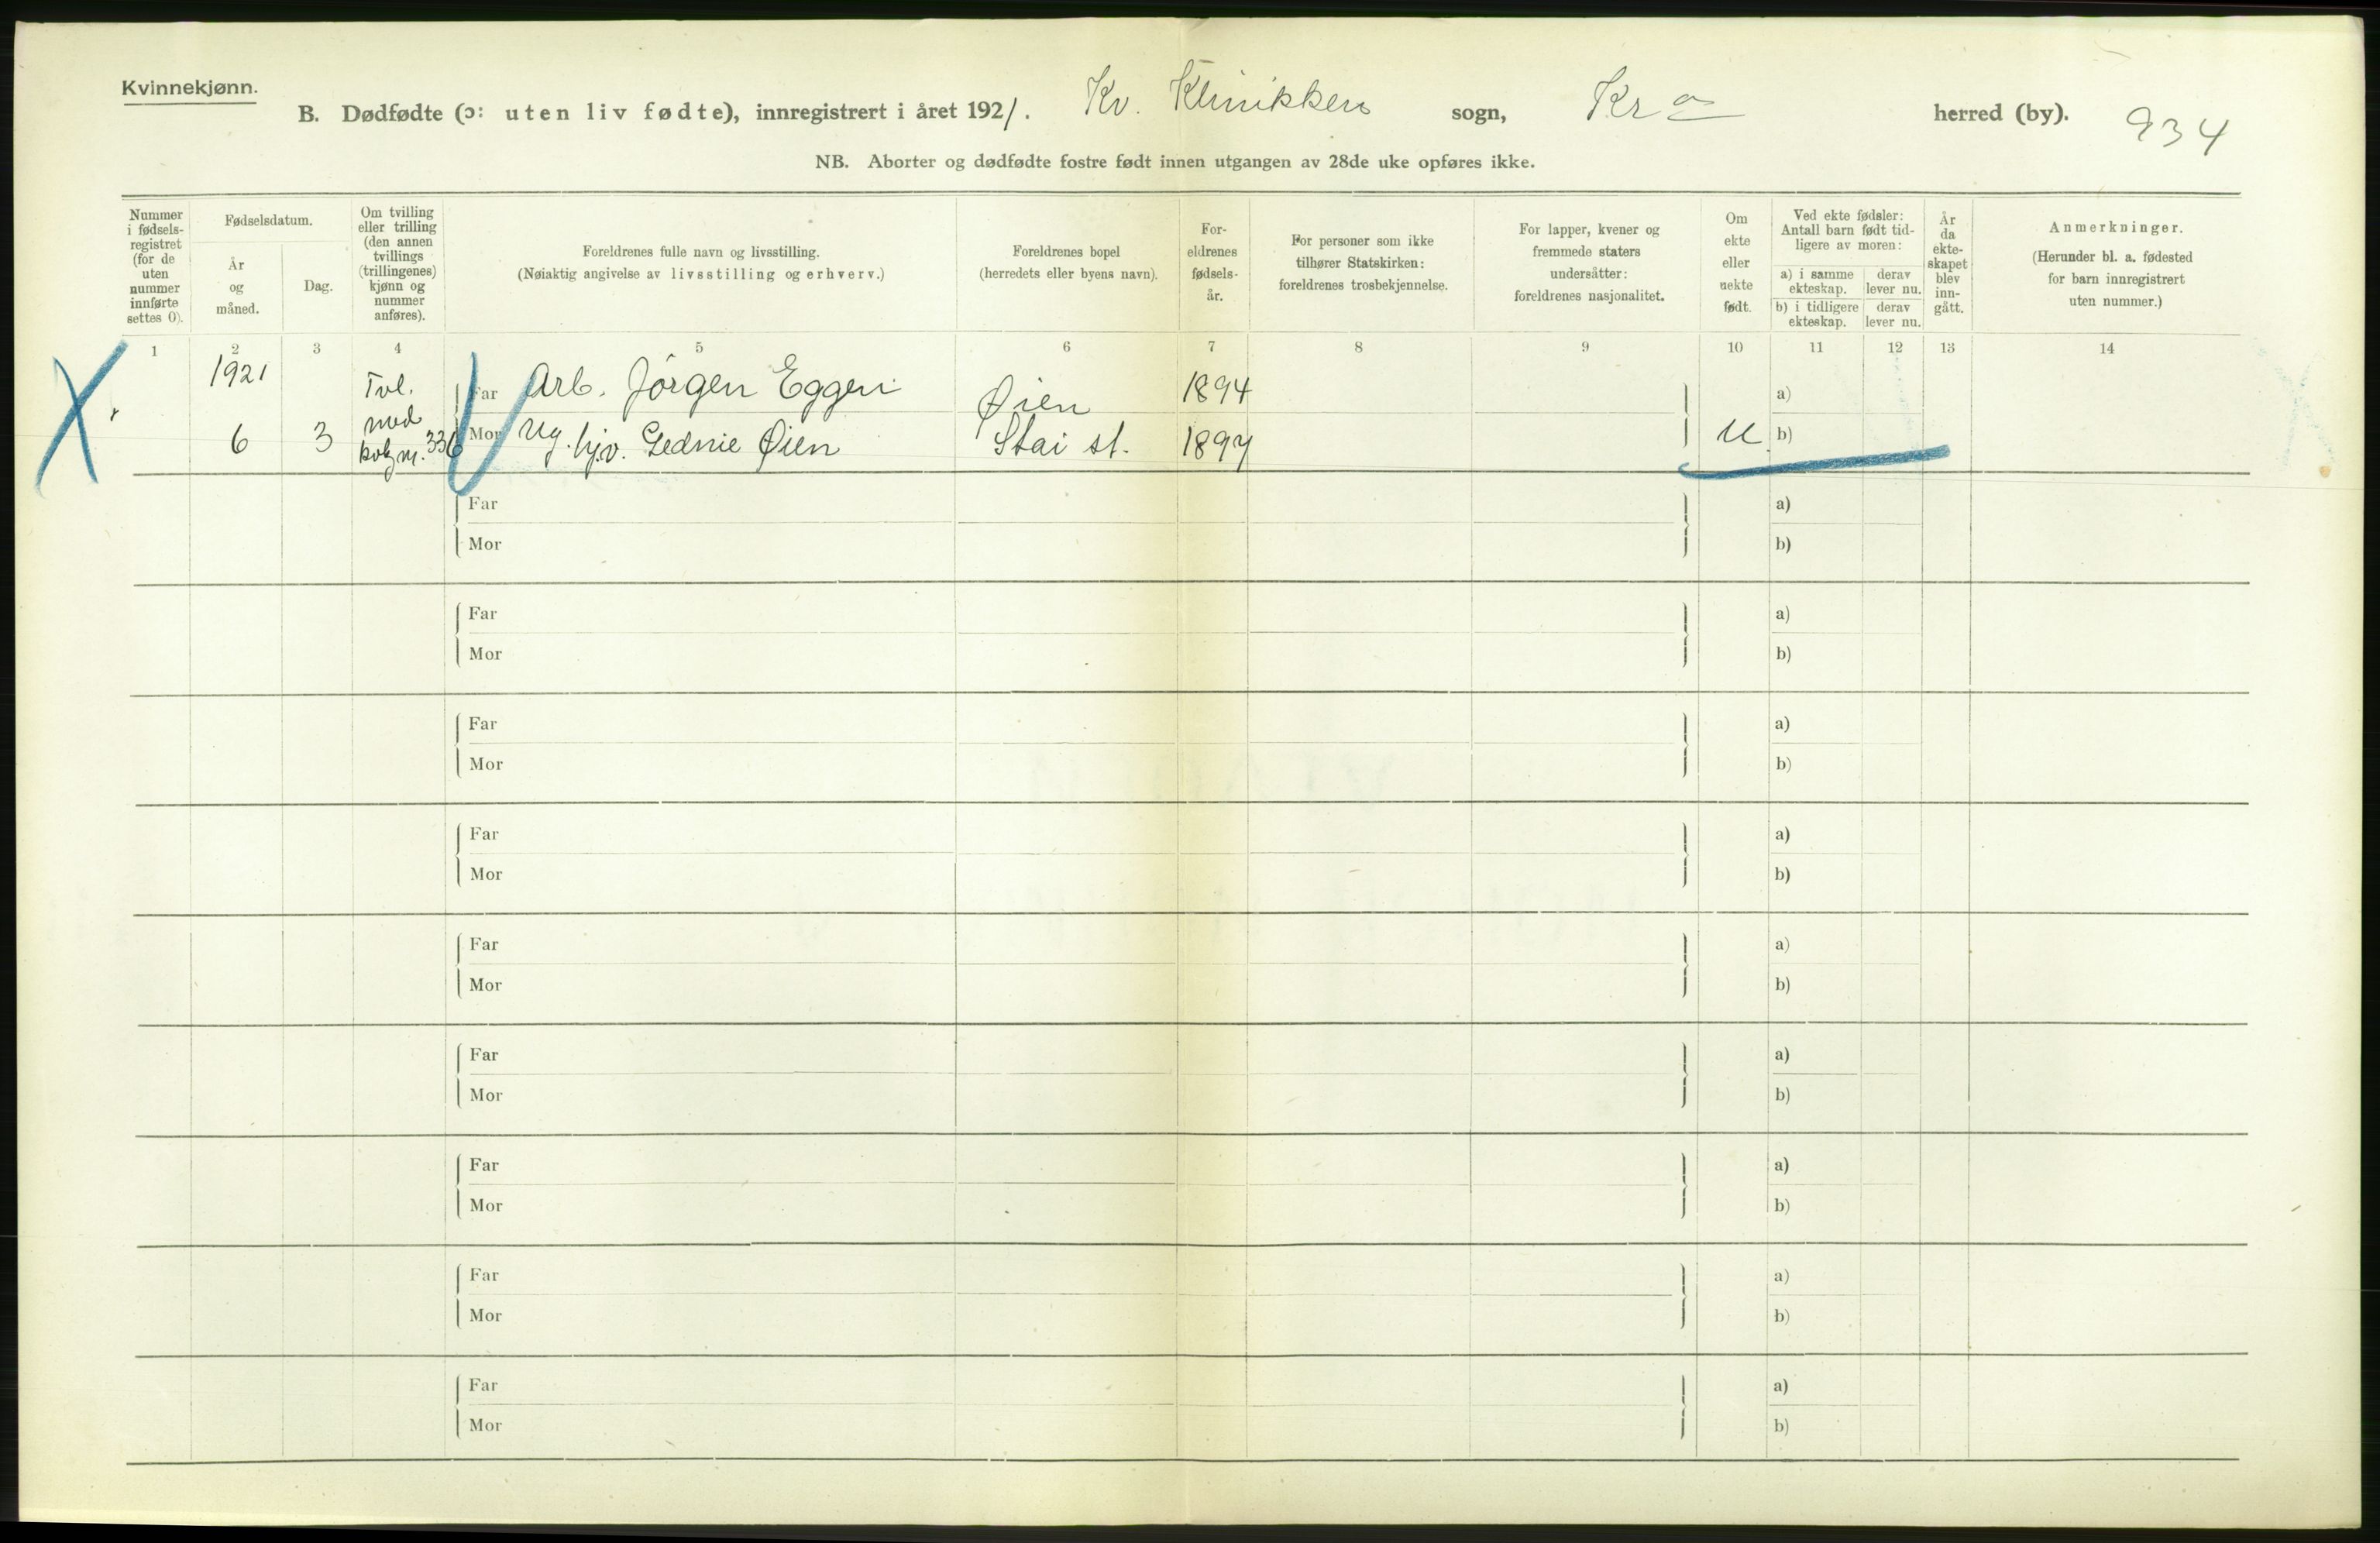 Kvinnekjønn.
B. Dødfødte (ɔ: uten liv fødte), innregistrert i året 1921. Kv. Klinikken sogn, Kra herred (by). 934
NB. Aborter og dødfødte fostre født innen utgangen av 28de uke opføres ikke.
Nummer i fødsels-registret (for de uten nummer innførte settes 0).
Fødselsdatum.
År og måned.
Dag.
Om tvilling eller trilling (den annen tvillings (trillingenes) kjønn og nummer anføres).
Foreldrenes fulle navn og livsstilling.
(Nøiaktig angivelse av livsstilling og erhverv.)
Foreldrenes bopel
(herredets eller byens navn).
For-eldrenes fødsels-år.
For personer som ikke tilhører Statskirken: foreldrenes trosbekjennelse.
For lapper, kvener og fremmede staters undersåtter: foreldrenes nasjonalitet.
Om ekte eller uekte født.
Ved ekte fødsler: Antall barn født tid-ligere av moren:
a) i samme ekteskap.
derav lever nu.
b) i tidligere ekteskap.
derav lever nu.
År da ekte-skapet blev inn-gått.
Anmerkninger.
(Herunder bl. a. fødested for barn innregistrert uten nummer.)
1 2 3 4 5 6 7 8 9 10 11 12 13 14
1921 Tvl. Far Arb. Jörgen Eggen Øien 1894 a)
6 3 med Mor Ug. hjv. Øien Stai st. 1897 U. b)
336
Far a)
Mor b)
Far a)
Mor b)
Far a)
Mor b)
Far a)
Mor b)
Far a)
Mor b)
Far a)
Mor b)
Far a)
Mor b)
Far a)
Mor b)
Far a)
Mor b)